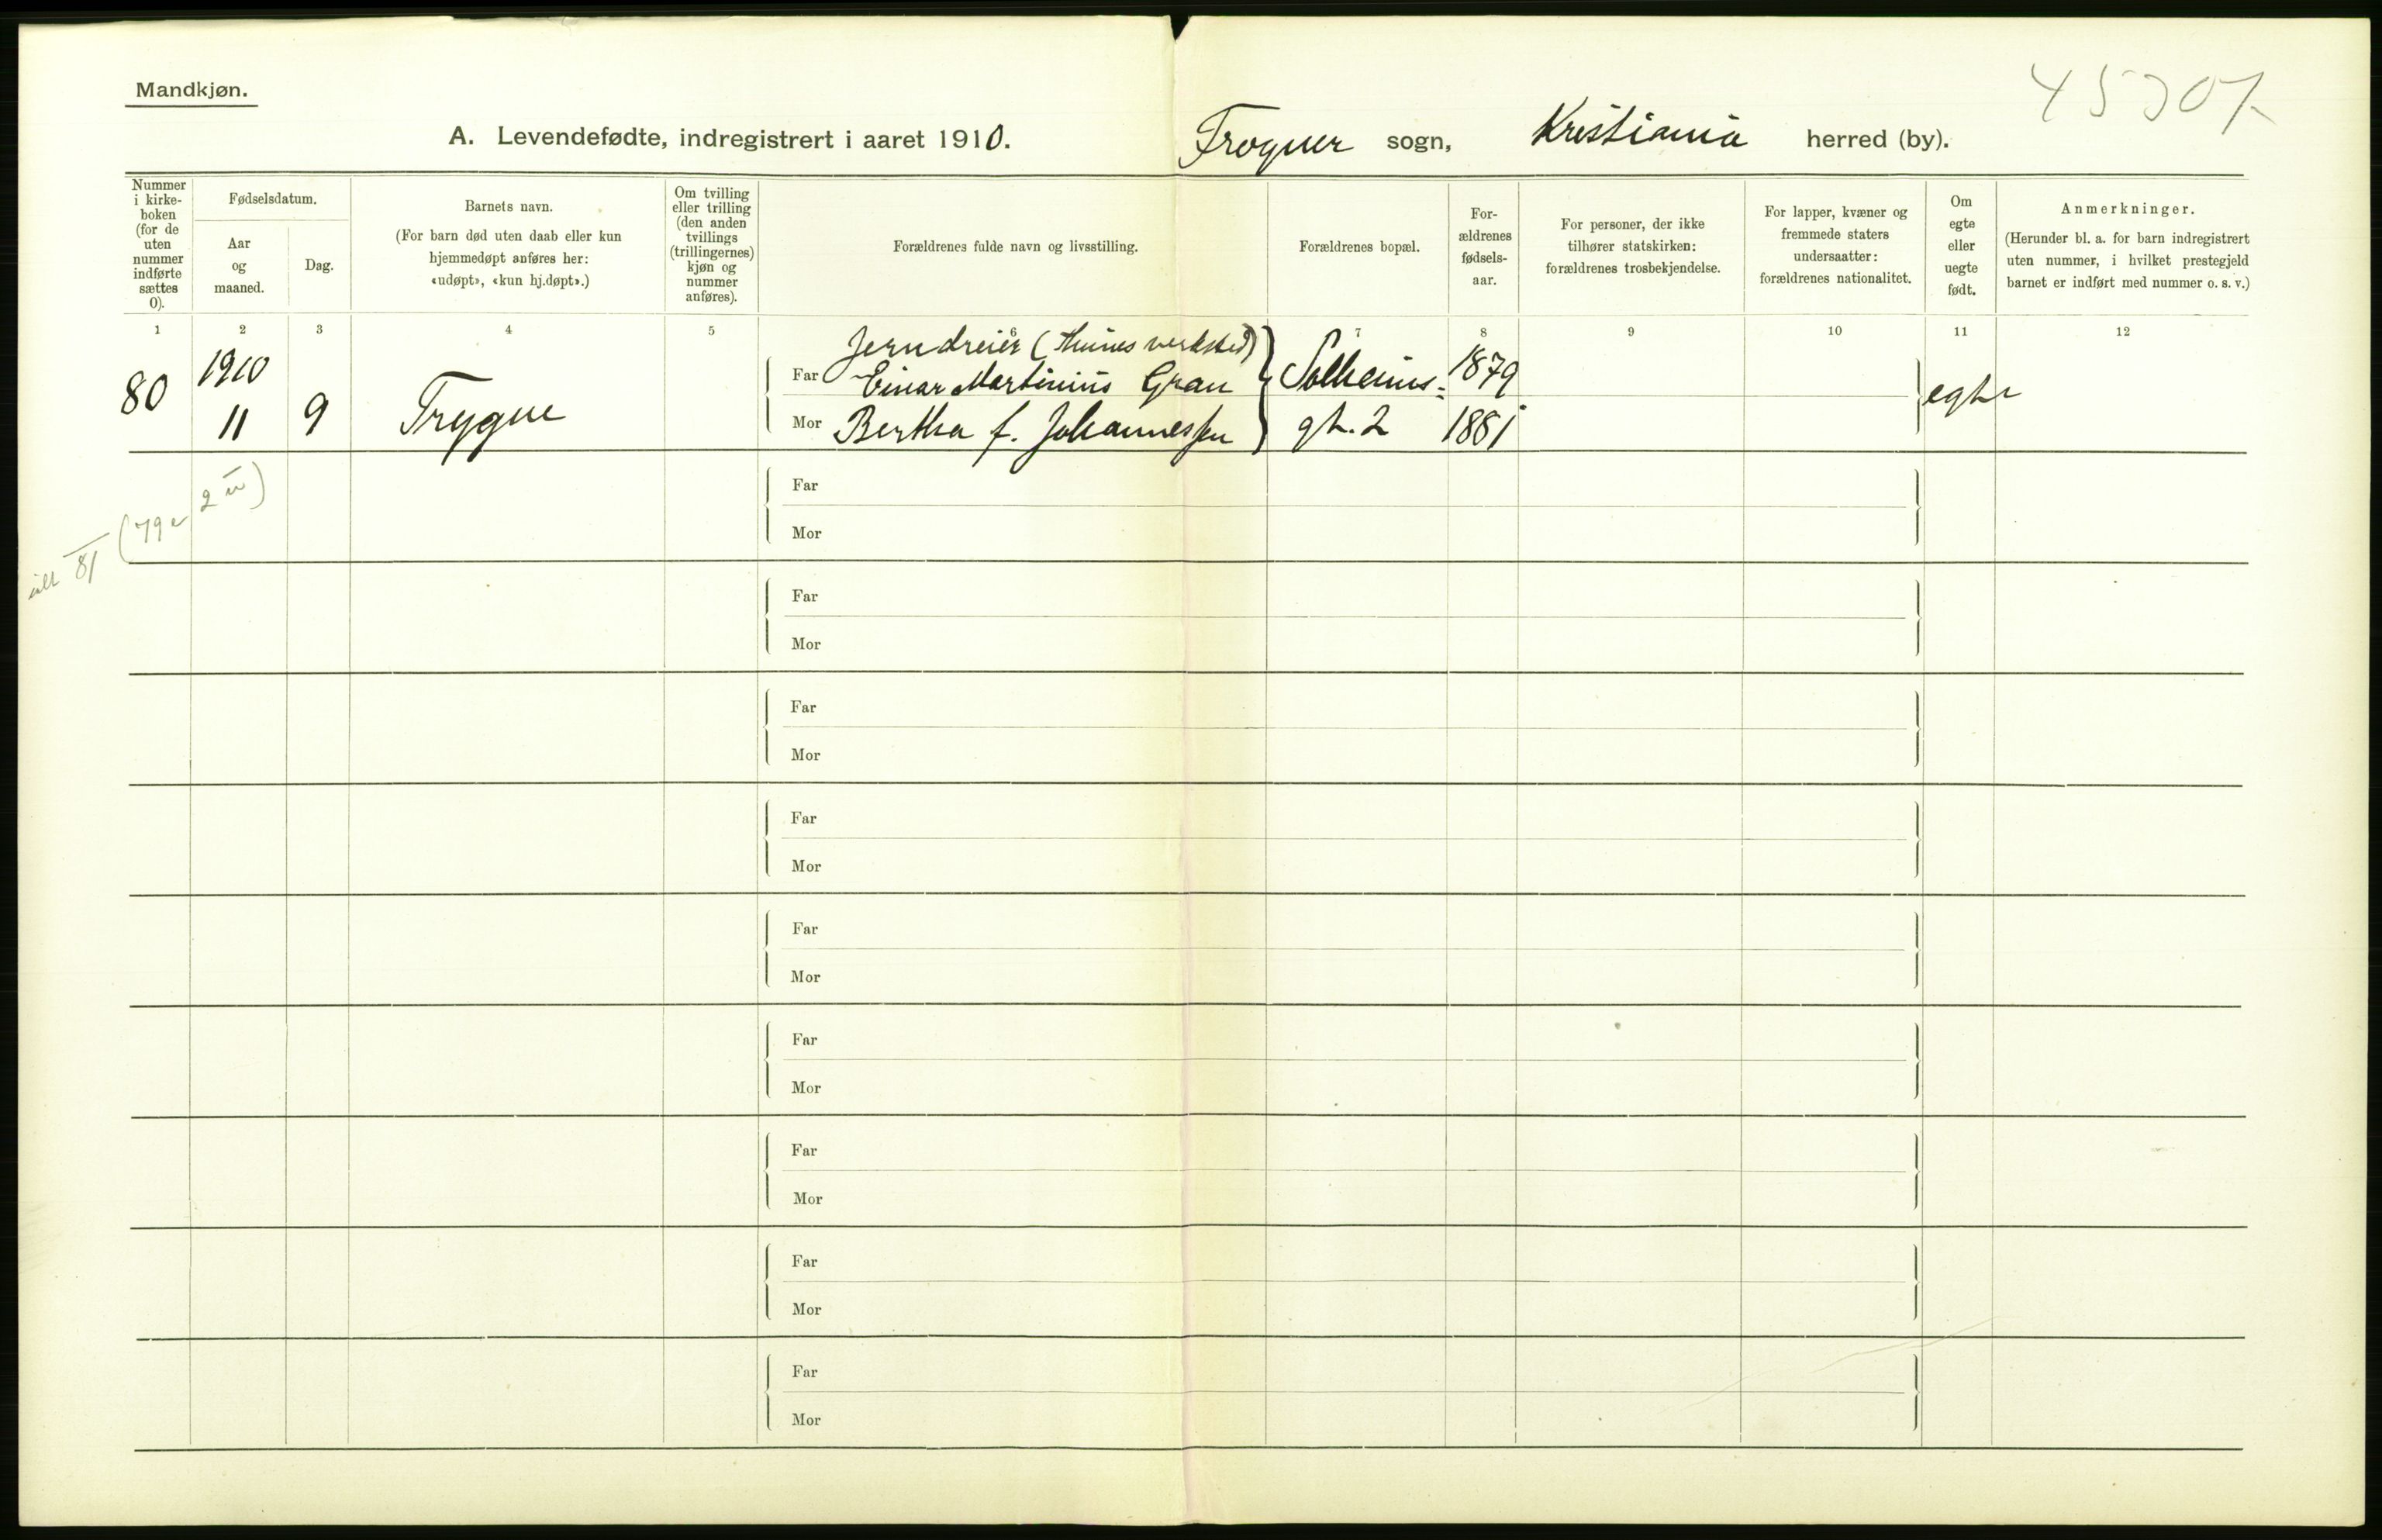 Mandkjøn.
4530
A. Levendefødte, indregistrert i aaret 1910. Frogner sogn, Kristiania herred (by).
Nummer i kirke-boken (for de uten nummer indførte sættes 0).
Fødselsdatum.
Aar og maaned.
Dag.
Barnets navn.
(For barn død uten daab eller kun hjemmedøpt anføres her: «udøpt», «kun hj.døpt».)
Om tvilling eller trilling (den anden tvillings (trillingernes) kjøn og nummer anføres).
Forældrenes fulde navn og livsstilling.
Forældrenes bopæl.
For-ældrenes fødsels-aar.
For personer, der ikke tilhører statskirken: forældrenes trosbekjendelse.
For lapper, kvæner og fremmede staters undersaatter: forældrenes nationalitet.
Om egte eller uegte født.
Anmerkninger.
(Herunder bl. a. for barn indregistrert uten nummer, i hvilket prestegjeld barnet er indført med nummer o. s. v.)
1 2 3 4 5 6 7 8 9 10 11 12
Jerndreier (Thunes verksted)
80 1910 Far Einar Martinius Gran Solheims- 1879 egte
11 9 Trygve Mor Bertha f. Johannessen gt. 2 1881
Far
Mor
(79 er 2
81
Far
Mor
Far
Mor
Far
Mor
Far
Mor
Far
Mor
Far
Mor
Far
Mor
Far
Mor